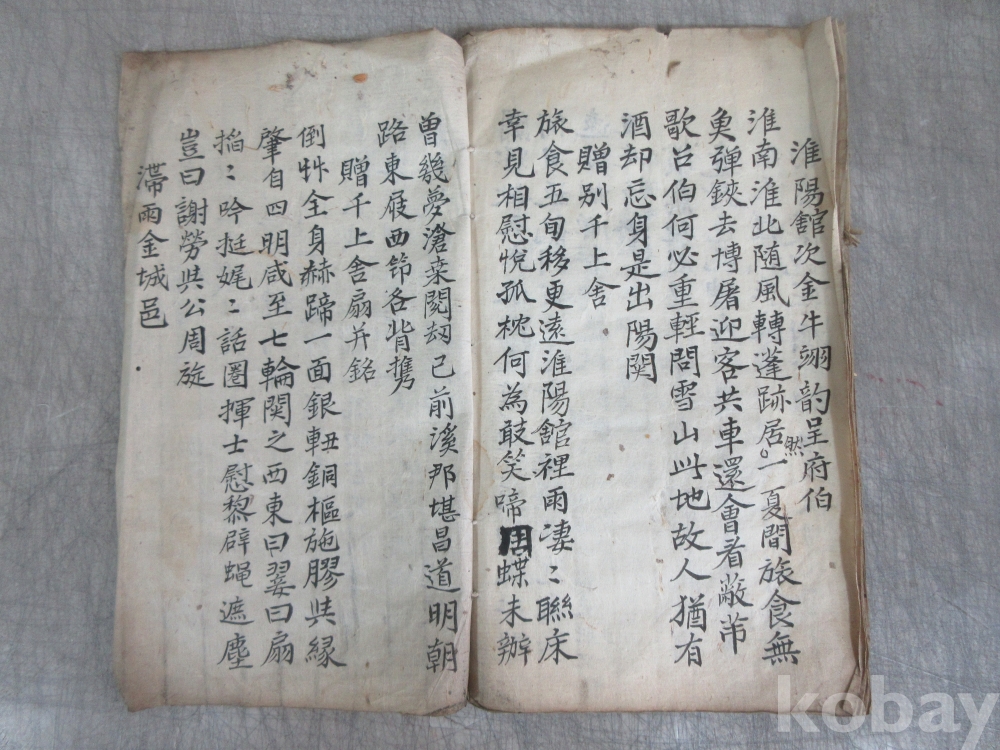 淮陽舘次金牛翊韵呈府伯
淮南淮北随風轉蓬跡居然一夏間旅食無
魚弾鋏去博屠迎客共車還會看敝芾
歌召伯何必重輕問雪山此地故人猶有
酒却忘身是出陽関
贈別千上舍
旅食五旬移更遠淮陽舘裡雨凄〻聯床
幸見相慰悅孤枕何為敢笑啼周蝶未辦
曽幾夢滄桒閱刼已前溪那堪昌道明朝
路東屐西笻各背携
贈千上舍扇并銘
倒竹全身赫蹄一面銀軐銅樞施膠与縁
肇自四明咸至七輪関之西東曰翣曰扇
搯〻吟挺娓〻話圏揮士慰黎辟蝇遮塵
豈曰謝勞与公周旋
滯雨金城邑
kobay